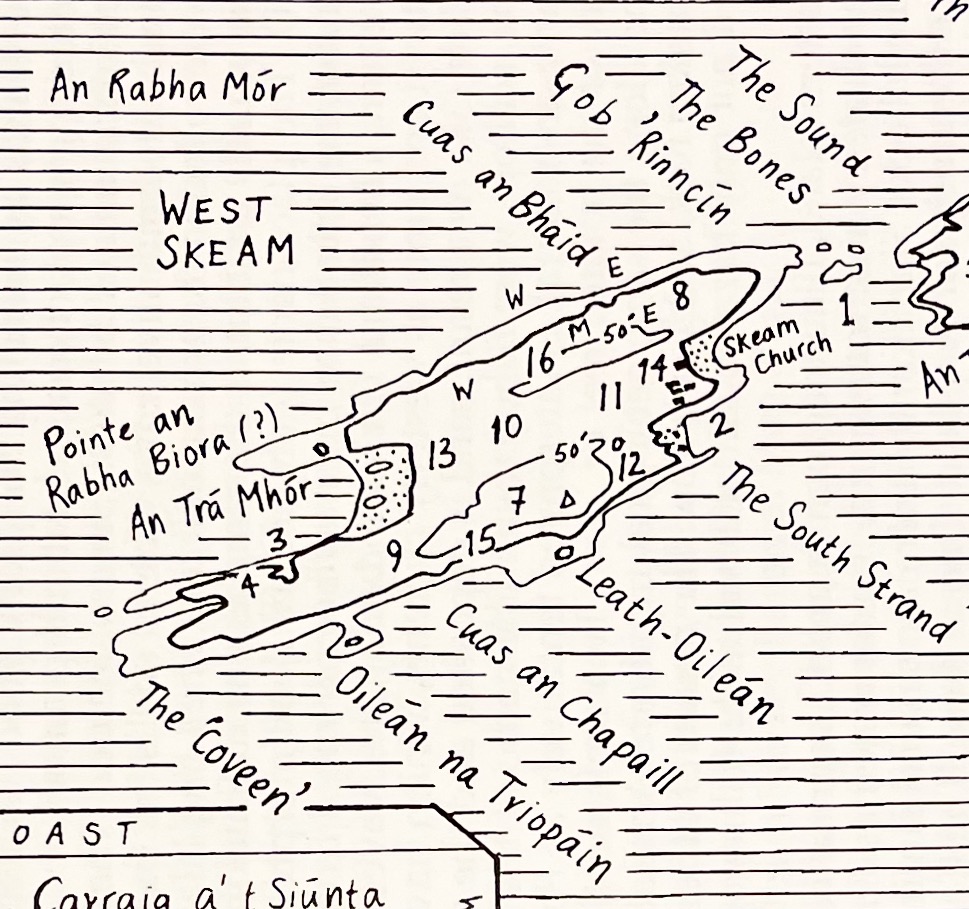 An Rabha Mór
WEST
SKEAM
Cuas an Bháid
Gob 'Rinncín
The Bones
The Sound
W
E
8
M
50'
E
16
W
1
Skeam
Church
14
11
2
10
13
50'
12
7
15
9
Pointe an
Rabha Biora (?)
An Trá Mhór
3
4
The South Strand
Leath-Oileán
Cuas an Chapaill
Oileán na Triopáin
The 'Coveen'
OAST
Carraig a' t Siúnta